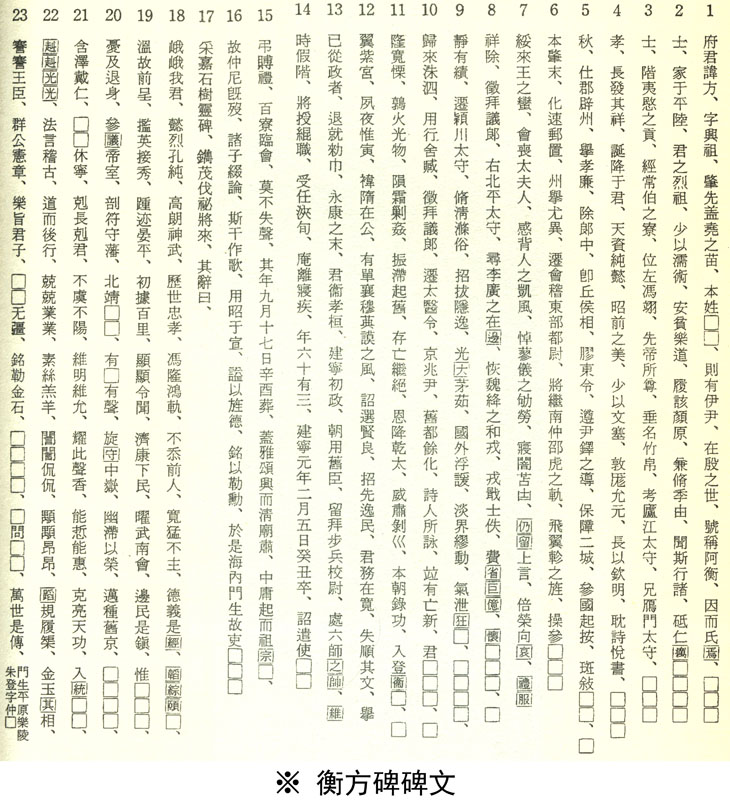 1 府君諱方、字興祖、肇先蓋堯之苗、本姓□□、則有伊尹、在殷之世、號稱阿衡、因而氏焉、□□□
2 士、家于平陸、君之烈祖、少以濡術、安貧樂道、履該顏原、兼脩季由、聞斯行諸、砥仁□□□
3 士、階夷愍之貢、經常伯之寮、位左馮翊、先帝所尊、垂名竹帛、考廬江太守、兄鴈門太守、□□□
4 孝、長發其祥、誕降于君、天資純懿、昭前之美、少以文塞、敦厖允元、長以欽明、耽詩悅書、□□□
5 秋、仕郡辟州、舉孝廉、除郎中、卽丘侯相、膠東令、遵尹鐸之導、保障二城、參國起按、斑敍□□□、□
6 本肇末、化速郵置、州舉尤異、遷會稽東部都尉、將繼南仲邵虎之軌、飛翼軫之旌、操參□□□
7 綏來王之蠻、會喪太夫人、感背人之凱風、悼蓼儀之劬勞、寢闇苫凷、仍留上言、倍榮向哀、禮服
8 祥除、徵拜議郎、右北平太守、尋李廣之在邊、恢魏絳之和戎、戎戢士佚、費省巨億、懷□□
9 靜有績、遷潁川太守、脩淸滌俗、招拔隱逸、光大茅茹、國外浮訞、淡界繆動、氣泄狂□、□□
10 歸來洙泗、用行舍臧、徵拜議郎、遷太醫令、京兆尹、舊都餘化、詩人所詠、竝有亡新、君□□□
11 隆寬慄、鶉火光物、隕霜剿姦、振滯起舊、存亡繼絕、恩降乾太、威肅剝巛、本朝錄功、入登衞□、□
12 翼紫宮、夙夜惟寅、褘隋在公、有單襄穆典謨之風、詔選賢良、招先逸民、君務在寬、失順其文、舉
13 已從政者、退就勑巾、永康之末、君衞孝桓、建寧初政、朝用舊臣、留拜步兵校尉、處六師之帥、維
14 時假階、將授緄職、受任浹旬、庵離寢疾、年六十有三、建寧元年二月五日癸丑卒、詔遣使□□
15 弔賻禮、百寮臨會、莫不失聲、其年九月十七日辛酉葬、蓋雅頌興而淸廟肅、中庸起而祖宗□、
16 故仲尼旣歿、諸子綴論、斯干作歌、用昭于宣、謚以旌德、銘以勒勳、於是海內門生故吏□□□
17 采嘉石樹靈碑、鐫茂伐祕將來、其辭曰、
18 峨峨我君、懿烈孔純、高朗神武、歷世忠孝、馮隆鴻軌、不忝前人、寬猛不主、德義是經、韜綜頤□、
19 溫故前呈、攬英接秀、踵迹晏平、初據百里、顯顯令聞、濟康下民、曜武南會、邊民是鎭、惟□□□
20 憂及退身、參議帝室、剖符守藩、北靖□□、有□有聲、旋守中嶽、幽滯以榮、邁種舊京、□□□□
21 含澤戴仁、□□休寧、剋長剋君、不虞不陽、維明維允、燿此聲香、能悊能惠、克亮天功、入統□□、
22 赳赳光光、法言稽古、道而後行、兢兢業業、素絲羔羊、誾誾侃侃、顒顒昂昂、蹈規履榘、金玉其相、
23 謇謇王臣、群公憲章、樂旨君子、□□无疆、銘勒金石、□□□□、□問□□、萬世是傳、
門生平原樂陵
朱登字仲□
※ 衡方碑碑文